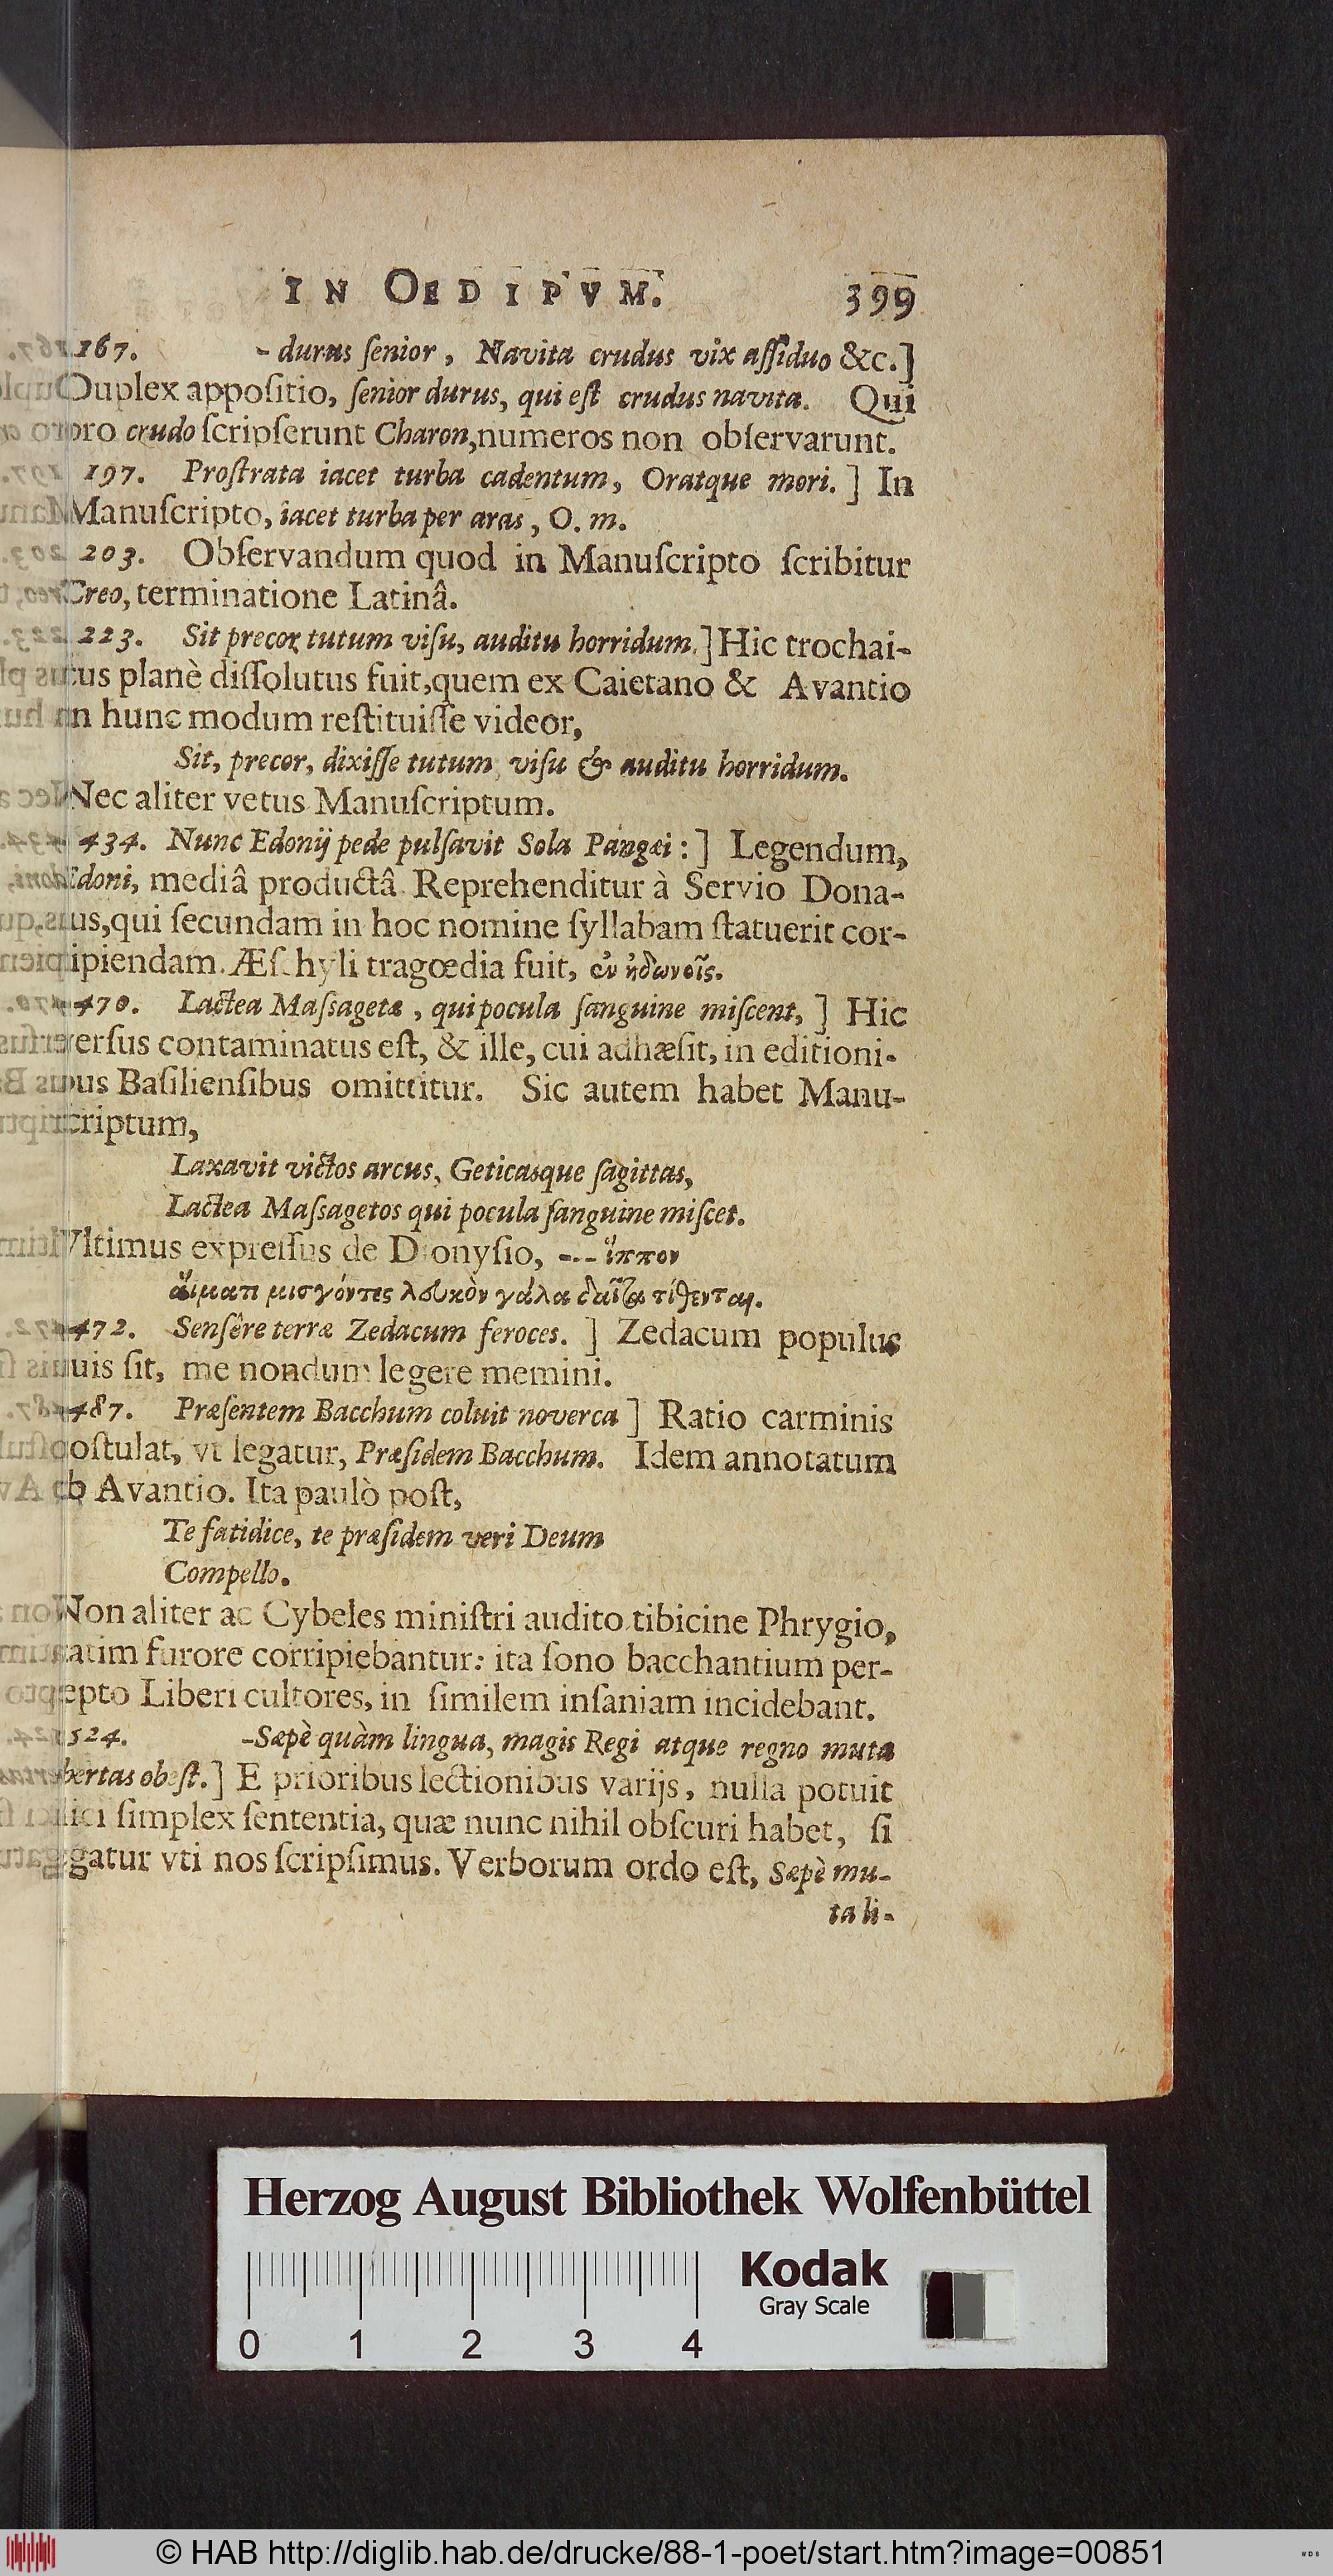 IN OEDIPVM. 399
167. - durus ſenior, Navita crudus vix aſſiduo &c.]
Duplex appoſitio, ſenior durus, qui eſt crudus navita. Qui
pro crudo ſcripſerunt Charon, numeros non obſervarunt.
197. Proſtrata iacet turba cadentum, Oratque mori.] In
Manuſcripto, iacet turba per aras, O. m.
203. Obſervandum quod in Manuſcripto ſcribitur
Creo, terminatione Latinâ.
223. Sit precor tutum viſu, auditu horridum.] Hic trochai-
cus planè diſſolutus fuit, quem ex Caietano & Avantio
in hunc modum reſtituiſſe videor,
Sit, precor, dixiſſe tutum viſu & auditu horridum.
Nec aliter vetus Manuſcriptum.
434. Nunc Edonij pede pulſavit Sola Pangæi:] Legendum,
Edoni, mediâ productâ. Reprehenditur à Servio Dona-
tus, qui ſecundam in hoc nomine ſyllabam ſtatuerit cor-
ripiendam. Æſchyli tragœdia fuit, ἐν ἠδωνοῖς.
470. Lactea Maſsagetæ, qui pocula ſanguine miſcent,] Hic
verſus contaminatus eſt, & ille, cui adhæſit, in editioni-
bus Baſilienſibus omittitur. Sic autem habet Manu-
ſcriptum,
Laxavit victos arcus, Geticasque ſagittas,
Lactea Maſsagetos qui pocula ſanguine miſcet.
Vltimus expreſſus de Dionyſio, --- ἵππον
αἵματι μισγόντες λευκὸν γάλα δαῖτα τίθενται.
472. Senſêre terræ Zedacum feroces.] Zedacum populus
quis ſit, me nondum legere memini.
487. Præſentem Bacchum coluit noverca] Ratio carminis
poſtulat, vt legatur, Præſidem Bacchum. Idem annotatum
ab Avantio. Ita paulò poſt,
Te fatidice, te præſidem veri Deum
Compello.
Non aliter ac Cybeles miniſtri audito tibicine Phrygio,
ſtatim furore corripiebantur: ita ſono bacchantium per-
cepto Liberi cultores, in ſimilem inſaniam incidebant.
524. -Sæpè quàm lingua, magis Regi atque regno muta
libertas obeſt.] E prioribus lectionibus varijs, nulla potuit
elici ſimplex ſententia, quæ nunc nihil obſcuri habet, ſi
legatur vti nos ſcripſimus. Verborum ordo eſt, Sæpè mu-
ta li-
Herzog August Bibliothek Wolfenbüttel
Kodak
Gray Scale
0 1 2 3 4
© HAB http://diglib.hab.de/drucke/88-1-poet/start.htm?image=00851